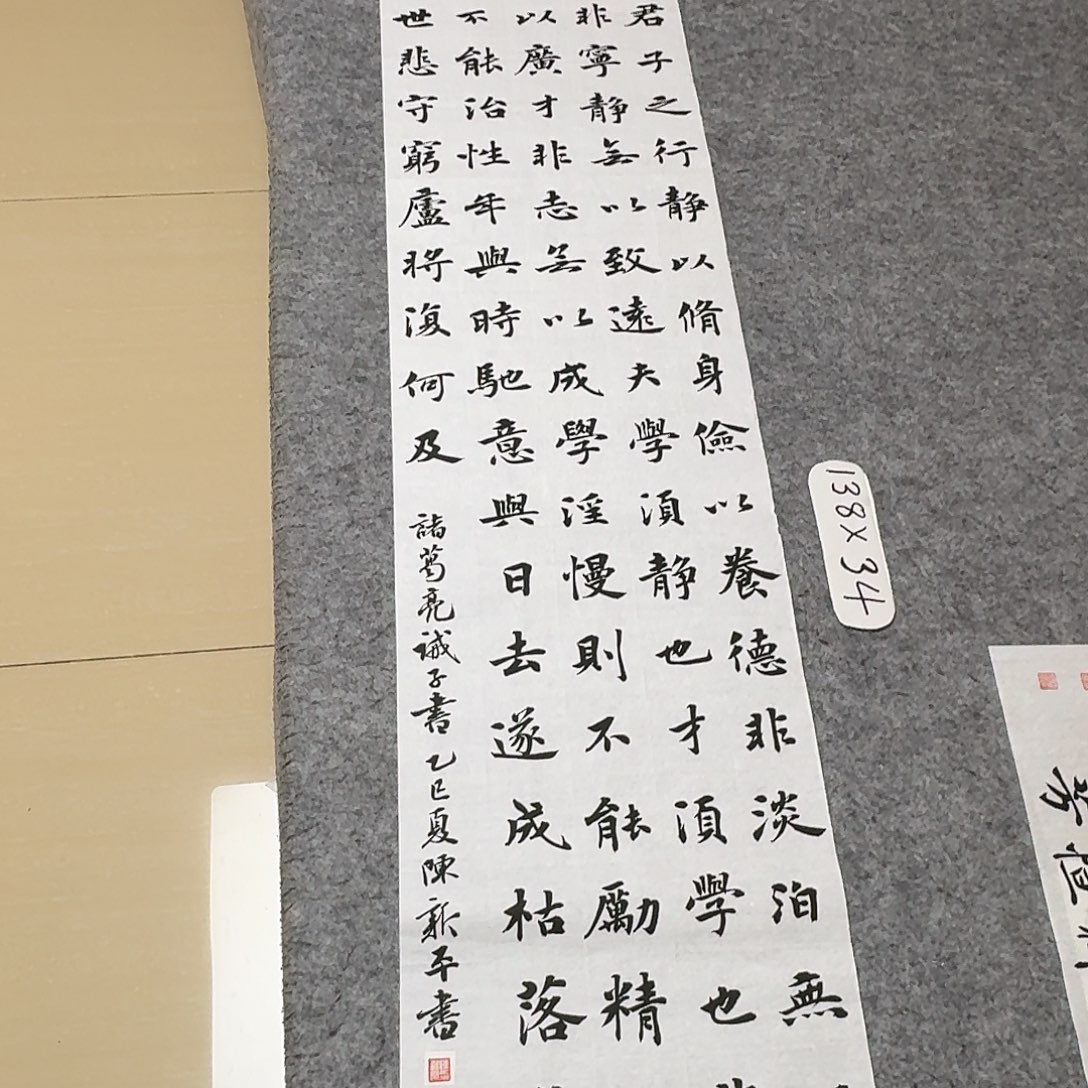 君子之行静以脩身儉以養德非淡泊無
非寧静無以致遠夫學湏静也才湏學也非
以廣才非志無以成學淫慢則不能勵精
不能治性年與時馳意與日去遂成枯落
世悲守窮廬將復何及
諸葛亮诫子書乙巳夏陳新平書
138×34